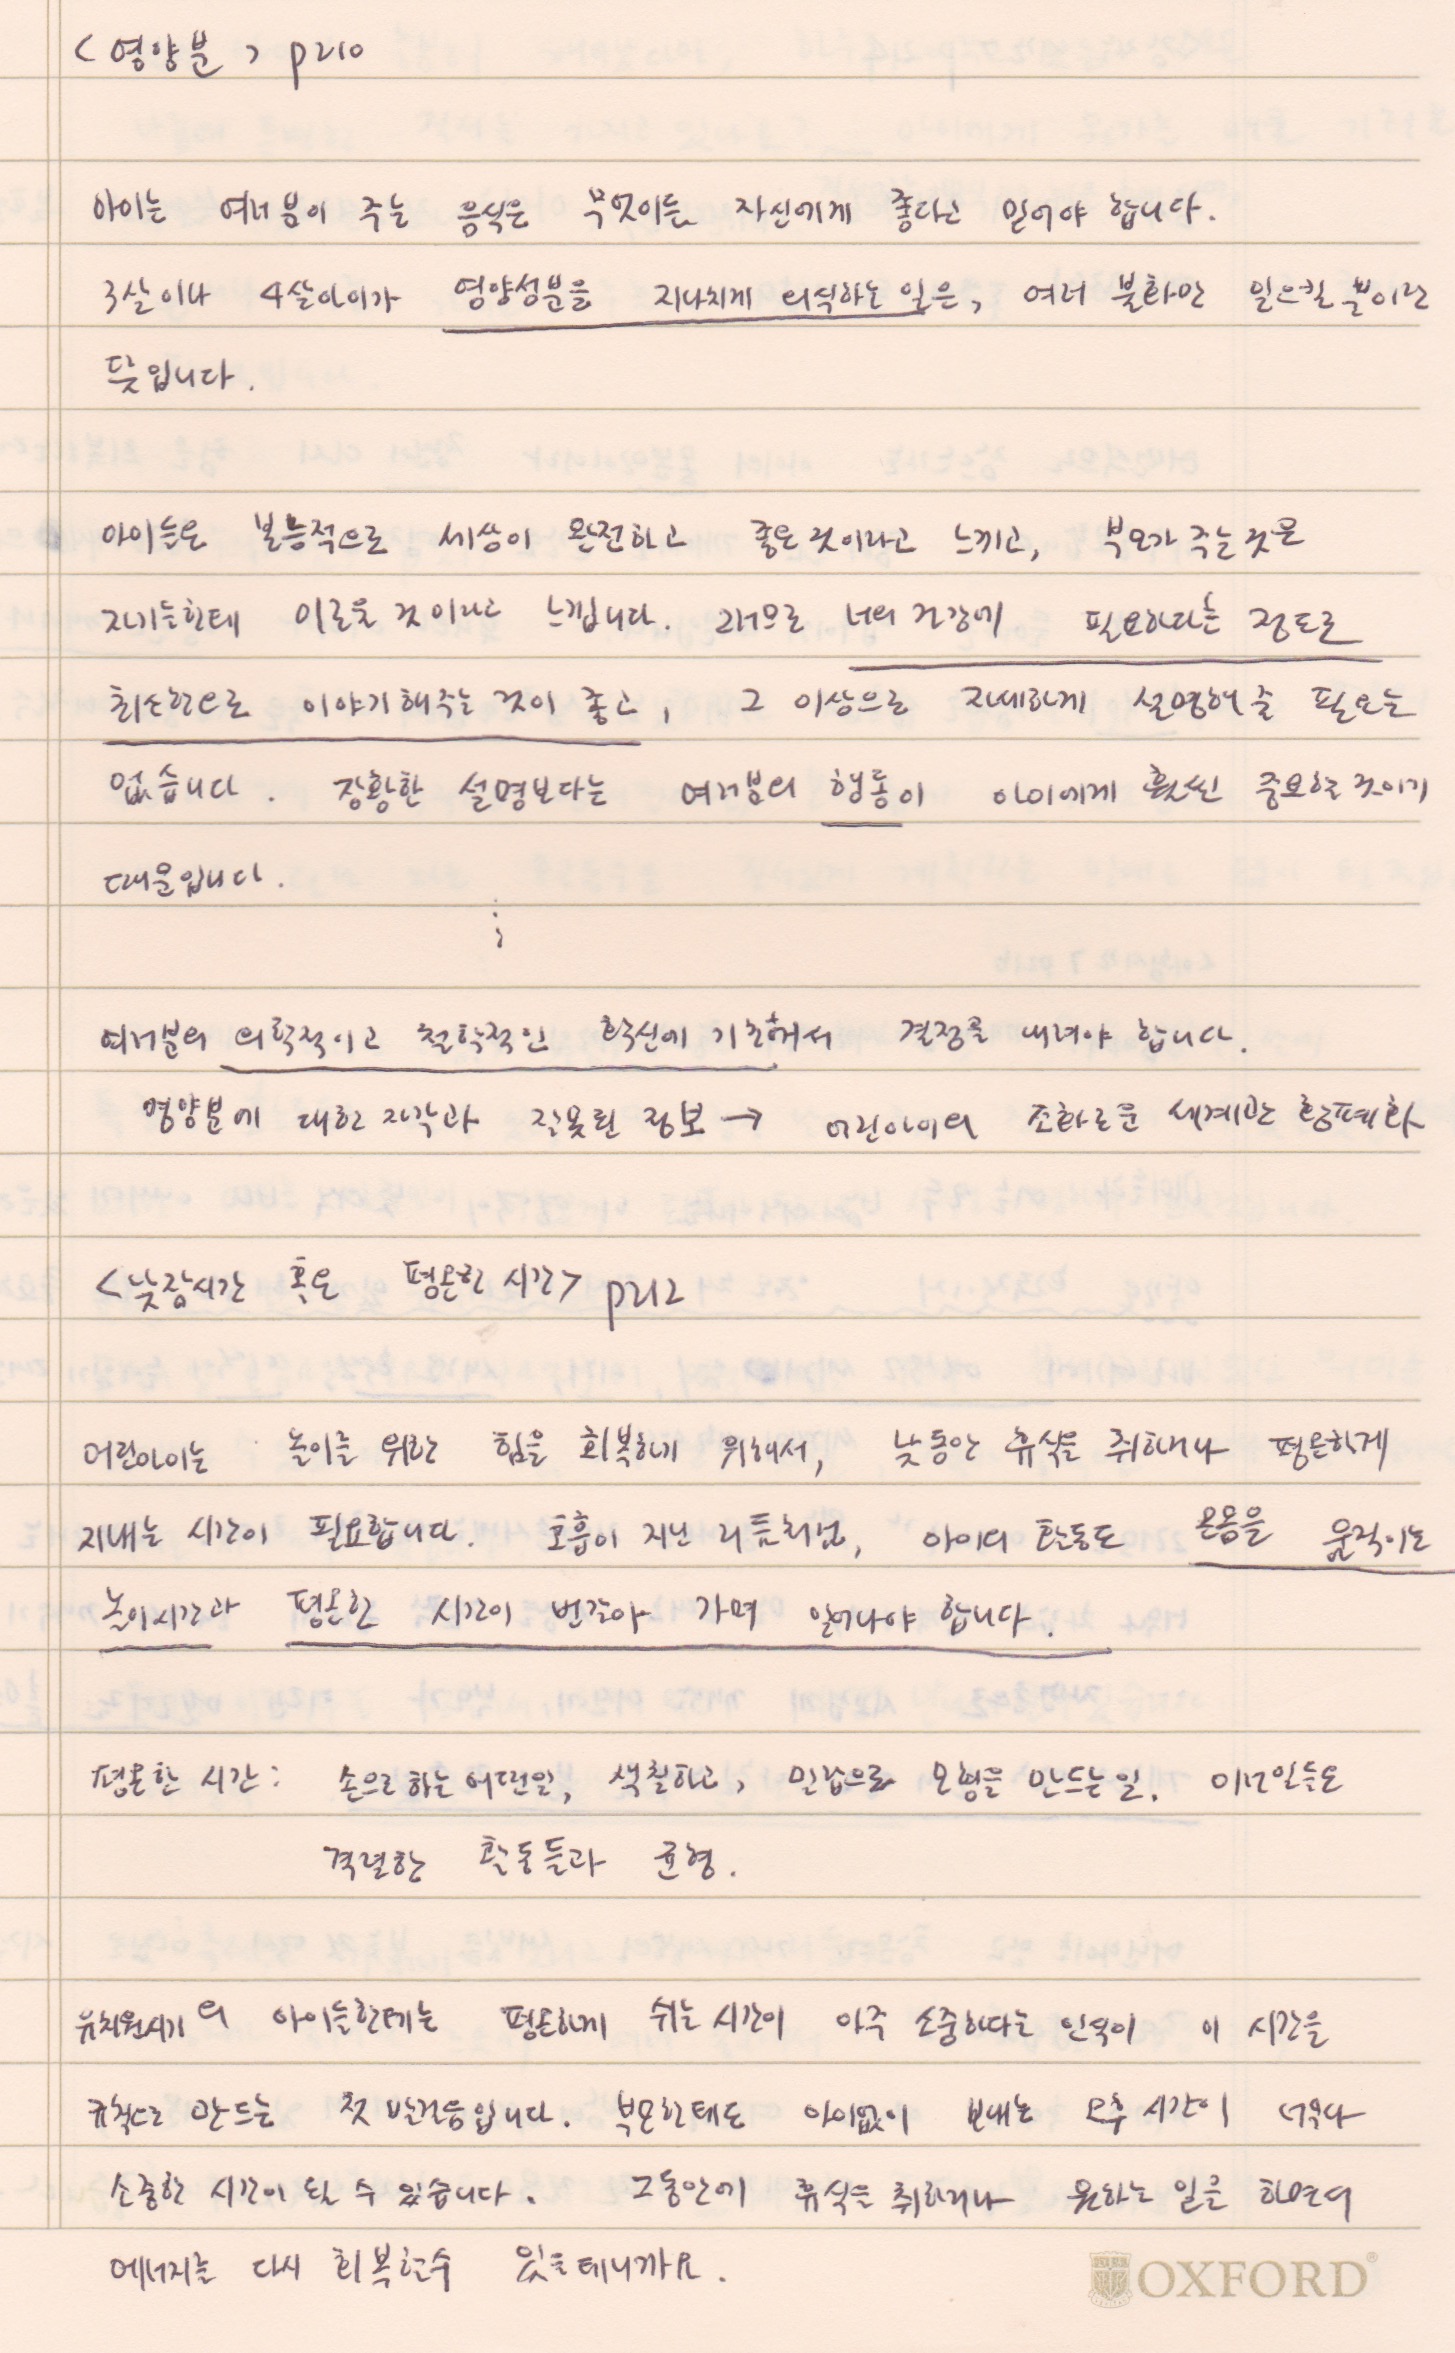 <영양분> p210
아이는 여러분이 주는 음식은 무엇이든 자신에게 좋다고 믿어야 합니다.
3살이나 4살아이가 영양성분을 지나치게 의식하는 일은, 여러 불화만 일으킬 뿐이란
뜻입니다.
아이들은 본능적으로 세상이 완전하고 좋은 것이라고 느끼고, 부모가 주는 것은
자기들한테 이로운 것이라고 느낍니다. 그러므로 너의 건강에 필요하다는 정도로
최소한으로 이야기해주는 것이 좋고, 그 이상으로 자세하게 설명해 줄 필요는
없습니다. 장황한 설명보다는 여러분의 행동이 아이에게 훨씬 중요한 것이기
때문입니다.
여러분의 의학적이고 철학적인 확신에 기초해서 결정을 내려야 합니다.
영양분에 대한 자각과 잘못된 정보 → 어린아이의 조화로운 세계관 황폐화
<낮잠시간 혹은 평온한 시간> p212
어린아이는 놀이를 위한 힘을 회복하기 위해서, 낮동안 휴식을 취하거나 평온하게
지내는 시간이 필요합니다. 호흡이 지닌 리듬처럼, 아이의 활동도 온몸을 움직이는
놀이시간과 평온한 시간이 번갈아 가며 일어나야 합니다.
평온한 시간: 손으로 하는 어떤일, 색칠하고, 밀랍으로 모형을 만드는 일. 이런일들도
격렬한 활동들과 균형.
유치원시기의 아이들한테는 평온하게 쉬는 시간이 아주 소중하다는 인식이 이 시간을
규칙으로 만드는 첫 발걸음입니다. 부모한테도 아이없이 보내는 오후 시간이 너무나
소중한 시간이 될 수 있습니다. 그동안에 휴식을 취하거나 원하는 일을 하면서
에너지를 다시 회복할수 있을테니까요.
OXFORD®